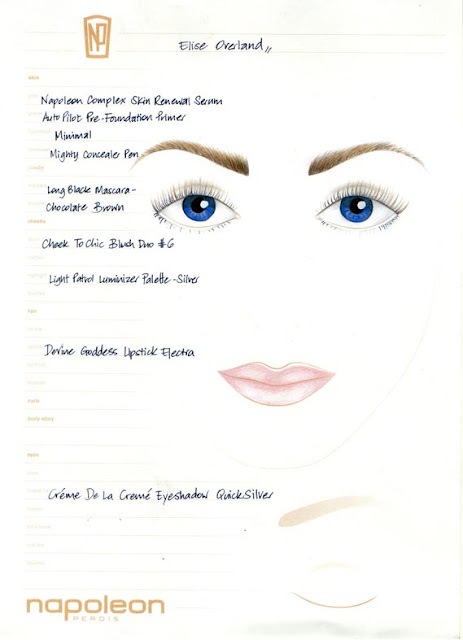 NP
Elise Overland,,
skin
Napoleon Complex Skin Renewal Serum
Auto Pilot Pre-Foundation Primer
Minimal
Mighty Concealer Pen
Long Black Mascara-
Chocolate Brown
cheeks
Cheek To Chic Blush Duo #6
Light Patrol Luminizer Palette-Silver
lips
Devine Goddess Lipstick Electra
neck
body story
eyes
Créme De La Cremé Eyeshadow QuickSilver
napoleon
PERDIS